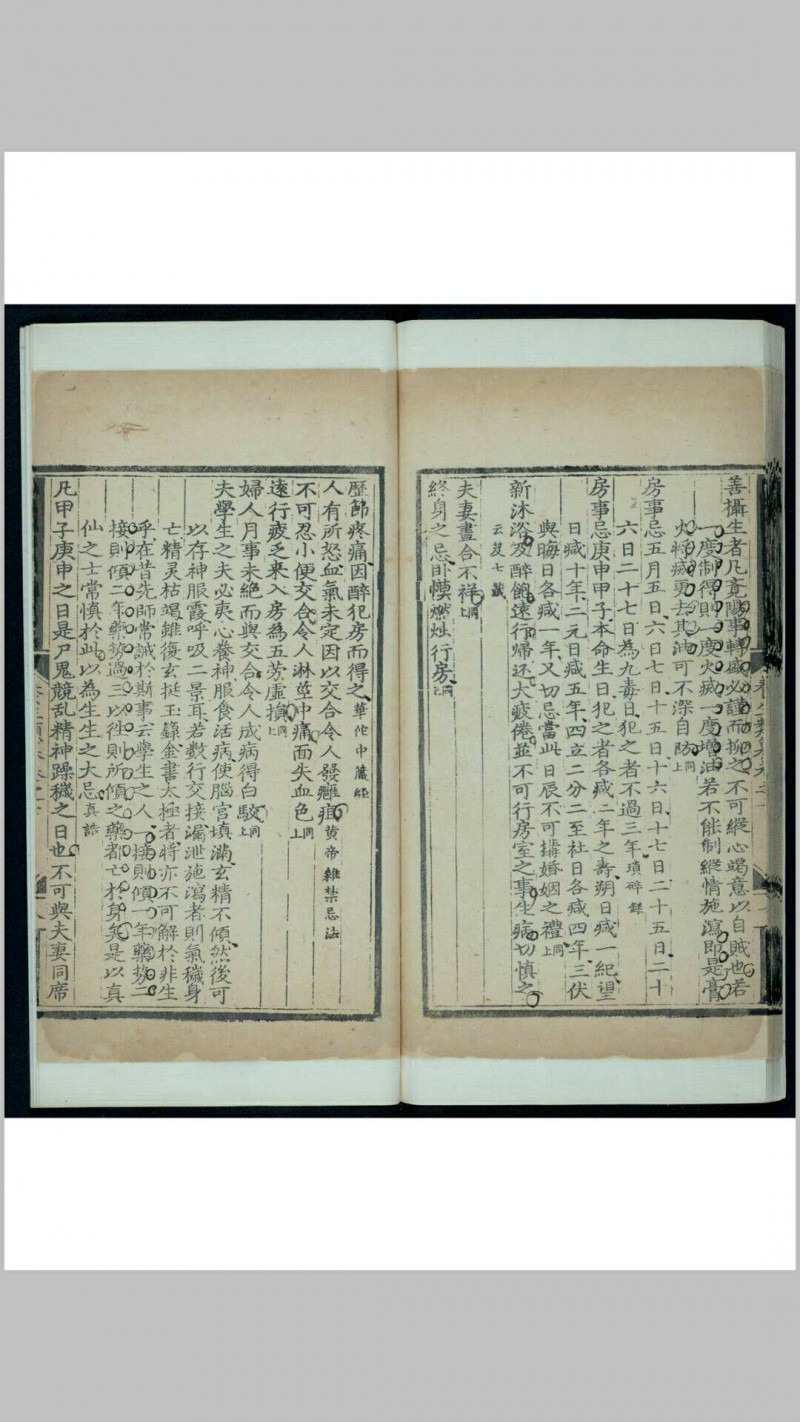 善攝生者凡覺陽事輒盛必謹而抑之不可縱心竭意以自賊也若
一度制得則一度火滅一度增油若不能制縱情施瀉即是膏
火將滅更去其油可不深自防同上
房事忌五月五日六日七日十五日十六日十七日二十五日二十
六日二十七日為九毒日犯之者不過三年瑣碎錄
房事忌庚申甲子本命生日犯之者各減二年之壽朔日減一紀望
日減十年二元日減五年四立二分二至社日各減四年三伏
與晦日各減一年又切忌當此日辰不可搆婚姻之禮同上
新沐浴及醉飽遠行帰还大疲倦並不可行房室之事生病切慎之
云笈七籤
夫妻晝合不祥同上
終身之忌卧幙燃燭行房同上
歷節疼痛因醉犯房而得之華佗中藏経
人有所怒血氣未定因以交合令人發癰疽黄帝雜禁忌法
不可忍小便交合令人淋莖中痛面失血色同上
遠行疲乏来入房為五劳虛損同上
婦人月事未絶而與交合令人成病得白駮同上
夫學生之夫必夷心養神服食活病使腦宮填滿玄精不傾然後可
以存神服霞呼吸二景耳若數行交接漏泄施瀉者則氣穢身
亡精灵枯竭雖復玄挺玉籙金書太極者将亦不可解於非生
乎在昔先師常誡於斯事云學生之人一接則傾一年藥势二
接則傾二年藥势過三以徃則所傾之藥都亡於身矣是以真
仙之士常慎於此以為生生之大忌真誥
凡甲子庚申之日是尸鬼競乱精神躁穢之日也不可與夫妻同席